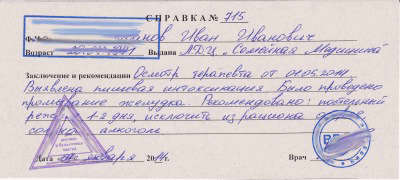 СПРАВКА № 715
Ф.И.О. Иван Иванович
Возраст Выдана ЛДЦ „Семейная Медицина"
Заключение и рекомендации Осмотр терапевта от 01.05.2014
Выявлена пищевая интоксикация Было проведено
промывание желудка. Рекомендовано: постельный
1-2 дня, исключить из рациона
алкоголь.
Дата января 2014г. Врач